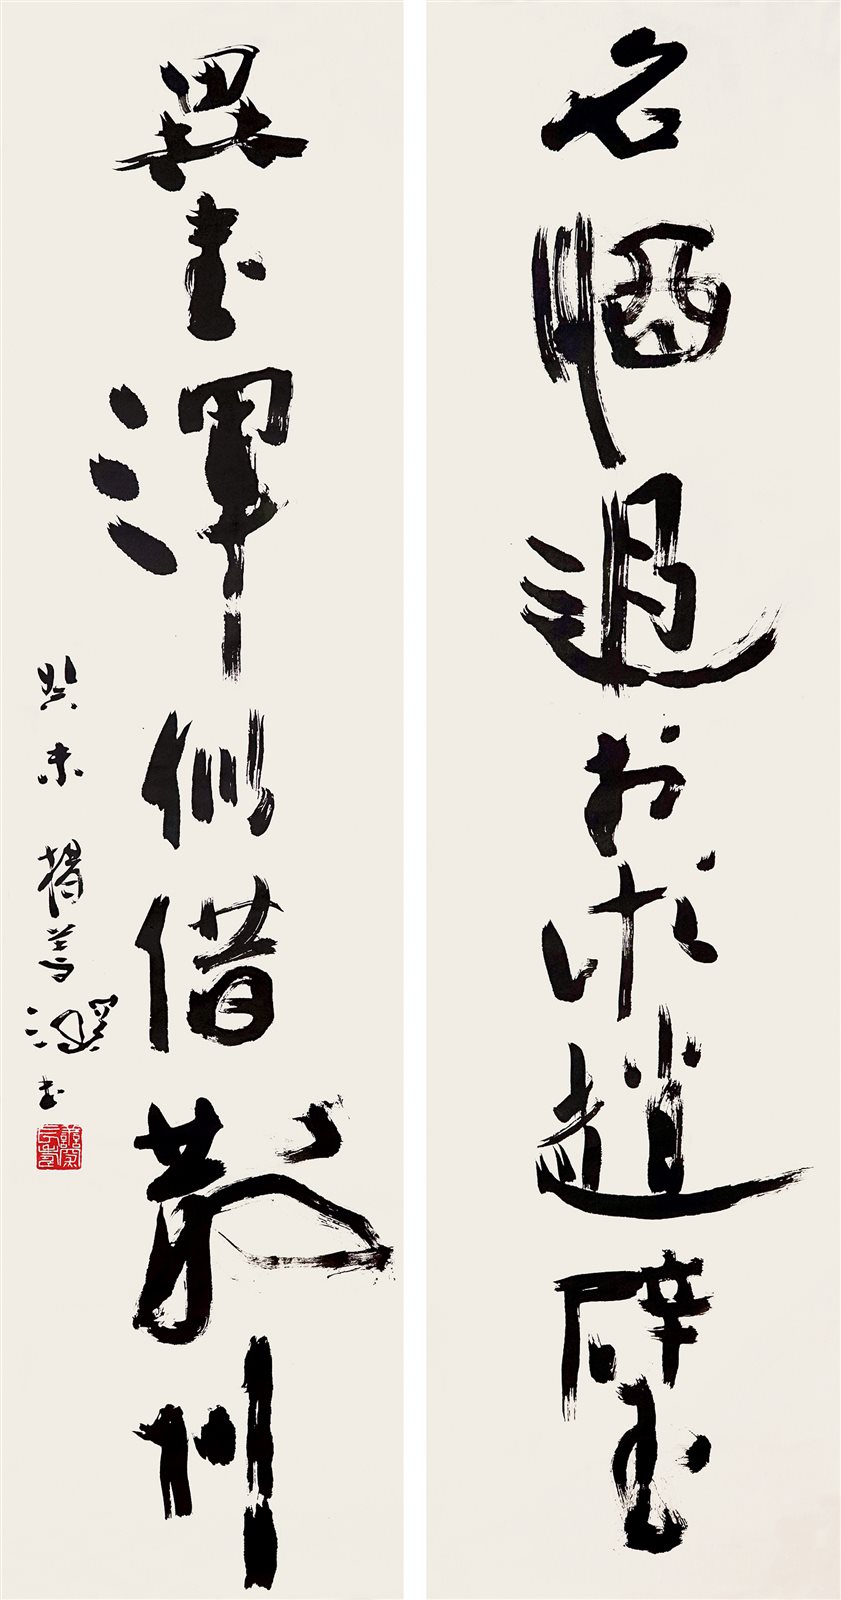 名酒過於求趙璧
異書渾似借荊州
癸未 楊善深書